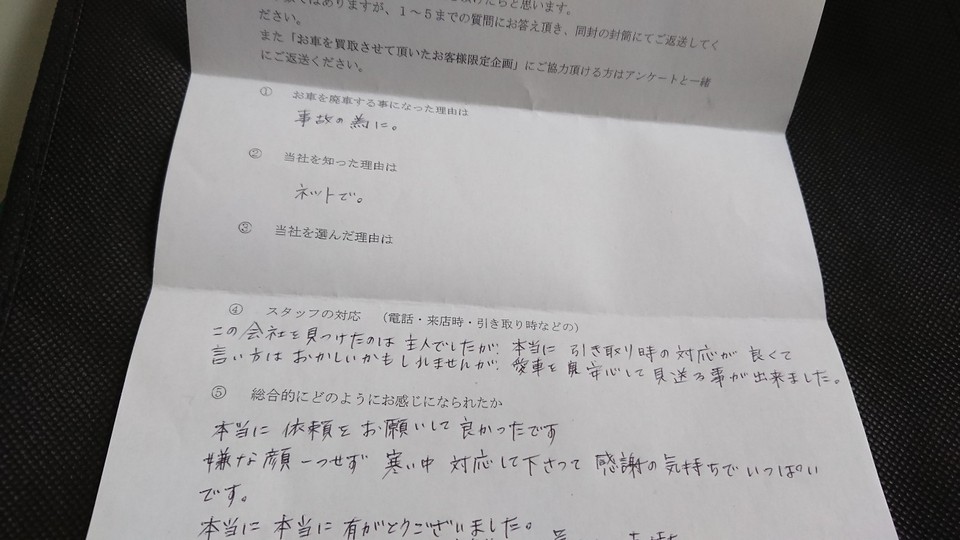 頂けたらと思います。
ではありますが、１～５までの質問にお答え頂き、同封の封筒にてご返送してく
ださい。
また「お車を買取させて頂いたお客様限定企画」にご協力頂ける方はアンケートと一緒
にご返送ください。
① お車を廃車する事になった理由は
事故の為に。
② 当社を知った理由は
ネットで。
③ 当社を選んだ理由は
④ スタッフの対応 （電話・来店時・引き取り時などの）
この会社を見つけたのは 主人でしたが、本当に 引き取り時の対応が 良くて
言い方は おかしいかもしれませんが、愛車を 安心して 見送る事が出来ました。
⑤ 総合的にどのようにお感じになられたか
本当に 依頼を お願いして 良かったです
嫌な顔 一つせず 寒い中 対応して下さって 感謝の気持ちで いっぱい
です。
本当に 本当に 有がとうございました。